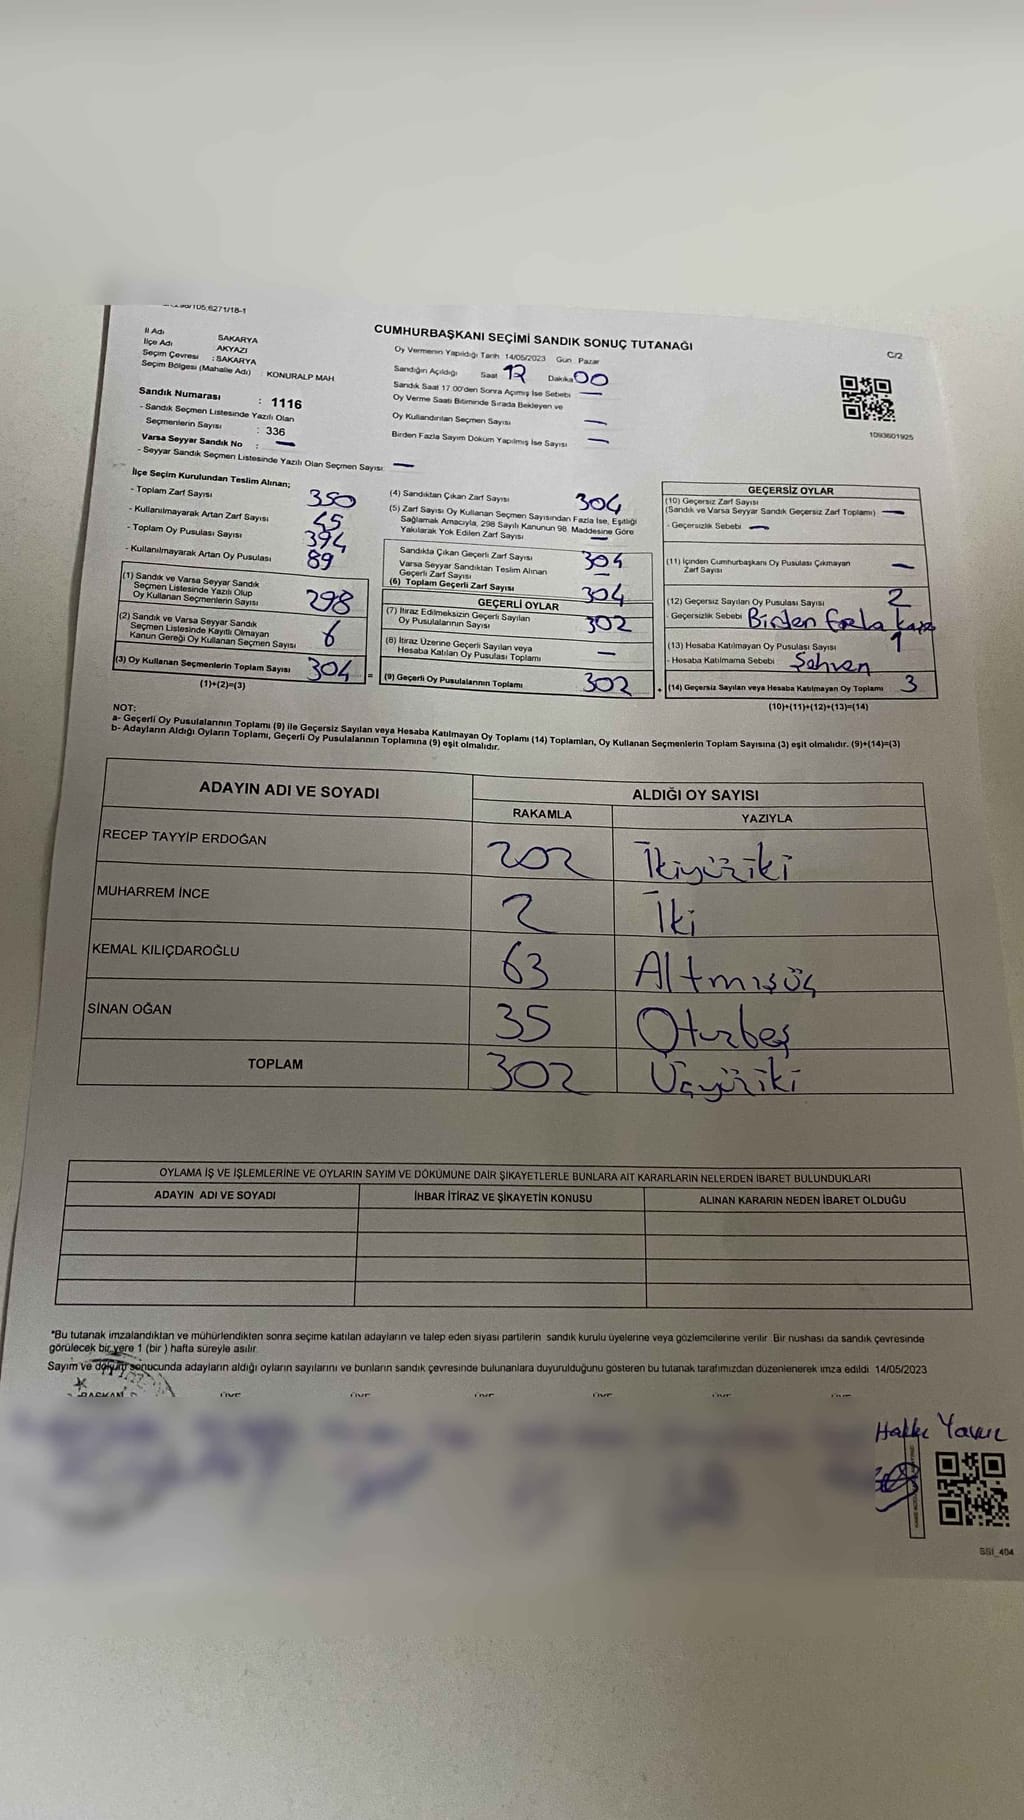 105.6271/18-1
CUMHURBAŞKANI SEÇİMİ SANDIK SONUÇ TUTANAĞI
C/2
İl Adı SAKARYA
İlçe Adı AKYAZI
Seçim Çevresi : SAKARYA
Seçim Bölgesi (Mahalle Adı) KONURALP MAH
Oy Vermenin Yapıldığı Tarih 14/05/2023 Gün Pazar
Sandığın Açıldığı Saat 17 Dakika 00
Sandık Saat 17 00'den Sonra Açımış İse Sebebi —
Oy Verme Saati Bitiminde Sırada Bekleyen ve
Oy Kullandırılan Seçmen Sayısı —
Birden Fazla Sayım Döküm Yapılmış İse Sayısı —
1093601925
Sandık Numarası : 1116
- Sandık Seçmen Listesinde Yazılı Olan
Seçmenlerin Sayısı : 336
Varsa Seyyar Sandık No : —
- Seyyar Sandık Seçmen Listesinde Yazılı Olan Seçmen Sayısı: —
İlçe Seçim Kurulundan Teslim Alınan;
- Toplam Zarf Sayısı 350
- Kullanılmayarak Artan Zarf Sayısı 45
- Toplam Oy Pusulası Sayısı 394
- Kullanılmayarak Artan Oy Pusulası 89
(1) Sandık ve Varsa Seyyar Sandık
Seçmen Listesinde Yazılı Olup
Oy Kullanan Seçmenlerin Sayısı 298
(2) Sandık ve Varsa Seyyar Sandık
Seçmen Listesinde Kayıtlı Olmayan
Kanun Gereği Oy Kullanan Seçmen Sayısı 6
(3) Oy Kullanan Seçmenlerin Toplam Sayısı 304 =
(1)+(2)=(3)
(4) Sandıktan Çıkan Zarf Sayısı 304
(5) Zarf Sayısı Oy Kullanan Seçmen Sayısından Fazla İse, Eşitliği
Sağlamak Amacıyla, 298 Sayılı Kanunun 98. Maddesine Göre
Yakılarak Yok Edilen Zarf Sayısı —
Sandıkta Çıkan Geçerli Zarf Sayısı 304
Varsa Seyyar Sandıktan Teslim Alınan
Geçerli Zarf Sayısı —
(6) Toplam Geçerli Zarf Sayısı 304
GEÇERLİ OYLAR
(7) İtiraz Edilmeksizin Geçerli Sayılan
Oy Pusulalarının Sayısı 302
(8) İtiraz Üzerine Geçerli Sayılan veya
Hesaba Katılan Oy Pusulası Toplamı —
(9) Geçerli Oy Pusulalarının Toplamı 302 +
GEÇERSİZ OYLAR
(10) Geçersiz Zarf Sayısı
(Sandık ve Varsa Seyyar Sandık Geçersiz Zarf Toplamı) —
- Geçersizlik Sebebi —
(11) İçinden Cumhurbaşkanı Oy Pusulası Çıkmayan
Zarf Sayısı —
(12) Geçersiz Sayılan Oy Pusulası Sayısı 2
- Geçersizlik Sebebi Birden fazla
(13) Hesaba Katılmayan Oy Pusulası Sayısı 1
- Hesaba Katılmama Sebebi Sehven
(14) Geçersiz Sayılan veya Hesaba Katılmayan Oy Toplamı 3
(10)+(11)+(12)+(13)=(14)
NOT:
a- Geçerli Oy Pusulalarının Toplamı (9) ile Geçersiz Sayılan veya Hesaba Katılmayan Oy Toplamı (14) Toplamları, Oy Kullanan Seçmenlerin Toplam Sayısına (3) eşit olmalıdır. (9)+(14)=(3)
b- Adayların Aldığı Oyların Toplamı, Geçerli Oy Pusulalarının Toplamına (9) eşit olmalıdır.
ADAYIN ADI VE SOYADI ALDIĞI OY SAYISI
RAKAMLA YAZIYLA
RECEP TAYYİP ERDOĞAN 202 İkiyüziki
MUHARREM İNCE 2 İki
KEMAL KILIÇDAROĞLU 63 Altmışüç
SİNAN OĞAN 35 Oturbeş
TOPLAM 302 Üçyüziki
OYLAMA İŞ VE İŞLEMLERİNE VE OYLARIN SAYIM VE DÖKÜMÜNE DAİR ŞİKAYETLERLE BUNLARA AİT KARARLARIN NELERDEN İBARET BULUNDUKLARI
ADAYIN ADI VE SOYADI İHBAR İTİRAZ VE ŞİKAYETİN KONUSU ALINAN KARARIN NEDEN İBARET OLDUĞU
*Bu tutanak imzalandıktan ve mühürlendikten sonra seçime katılan adayların ve talep eden siyasi partilerin sandık kurulu üyelerine veya gözlemcilerine verilir Bir nüshası da sandık çevresinde
görülecek bir yere 1 (bir ) hafta süreyle asılır
Sayım ve döküm sonucunda adayların aldığı oyların sayılarını ve bunların sandık çevresinde bulunanlara duyurulduğunu gösteren bu tutanak tarafımızdan düzenlenerek imza edildi 14/05/2023
BAŞKAN ÜYE ÜYE ÜYE ÜYE ÜYE ÜYE
Hakkı Yavuz
SSI_404